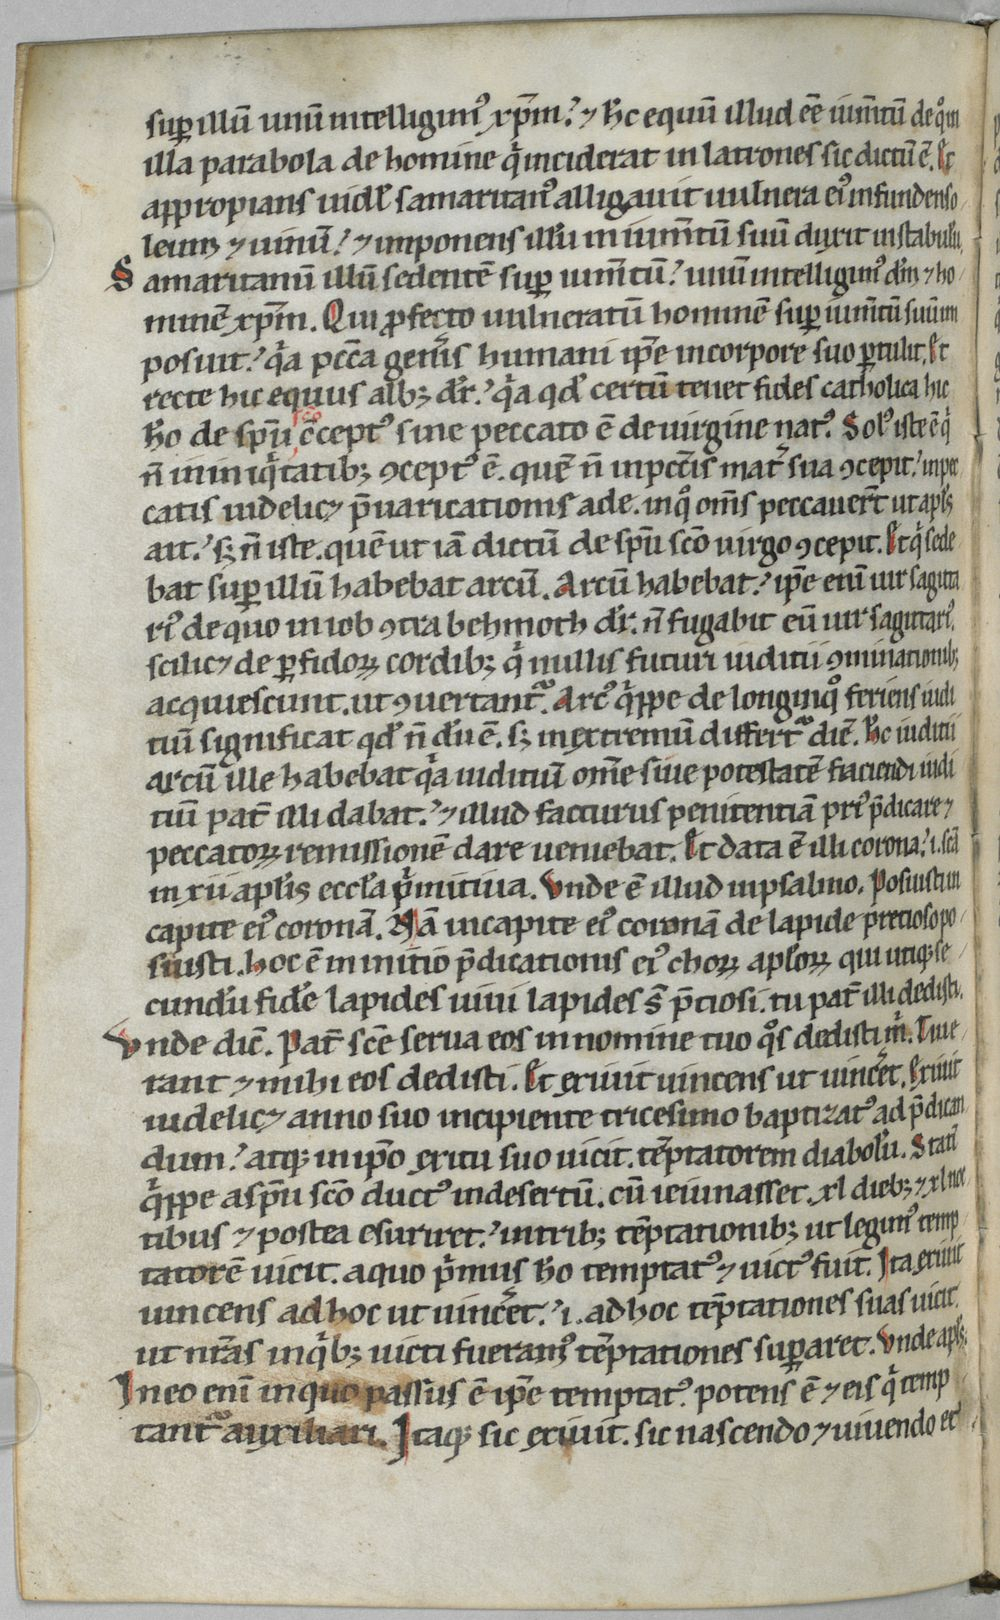 sup illū unū intelligimꝰ xp̄m? ⁊ h̄c equū illud eē ium̄tū de qͦ in
illa parabola de homine qͥ inciderat in latrones sic dictū ē. Et
appropians uidꝫ samaritanꝰ alligauit uulnera eiꝰ infundens o
leum ⁊ uinū? ⁊ imponens illū in ium̄tū suū duxit in stabulū.
Samaritanū illū sedentē sup ium̄tū? unū intelligimꝰ dm̄ ⁊ ho
minē xp̄m. Qui ꝓfecto uulneratū hominē sup ium̄tū suū im
posuit? qͥa pcc̄a gen̄is humani ip̄e in corpore suo ꝑtulit. Et
recte hic equus albꝫ dr̄? qͥa qd̄ certū tenet fides catholica hic
ho de spū sc̄o c̄ceptꝰ sine peccato ē de uirgine natꝰ. Solꝰ iste ē qͥ
n̄ in iniqͥtatibꝫ ꝯceptꝰ ē. quē n̄ in pcc̄is mat̄ sua ꝯcepit? in pec
catis uidelicꝫ p̄uaricationis ade. in qͦ om̄s peccauer̄t ut apl̄s
ait? sꝫ n̄ iste. quē ut iā dictū de spū sc̄o uirgo ꝯcepit. Et qͥ sede
bat sup illū habebat arcū. Arcū habebat? ip̄e enī uir sagitta
riꝰ de quo in iob ꝯtra behmoth dr̄. n̄ fugabit eū uir sagittariꝰ.
scilicꝫ de ꝑfidoꝝ cordibꝫ qͥ nullis futuri iuditii ꝯminationibꝫ
acquiescunt. ut ꝯuertantᷣ. Arcꝰ qͥppe de longinqͦ feriens iudi
tiū significat qd̄ n̄ diu ē. sꝫ in extremū differtᷣ diē. H̄c iuditii
arcū ille habebat qͥa iuditiū om̄e siue potestatē faciendi iudi
tiū pat̄ illi dabat? ⁊ illud facturus penitentiā priꝰ p̄dicare ⁊
peccatoꝝ remissionē dare ueniebat. Et data ē illi corona? .i. scā
in xii apl̄is eccl̄a pͥmitiua. Vnde ē illud in psalmo. Posuisti in
capite eiꝰ coronā. Nā in capite eiꝰ coronā de lapide precioso po
suisti. hoc ē in initio p̄dicationis eiꝰ choꝝ apl̄oꝝ qui utiqꝫ se
cundū fidē lapides uiui lapides s̄t p̄ciosi. tu pat̄ illi dedisti.
Vnde dic̄. Pat̄ scē serua eos in nomine tuo qͦs dedisti m̄. Tui e
rant ⁊ mihi eos dedisti. Et exiuit uincens ut uinc̄et. Exiuit
uidelicꝫ anno suo incipiente tricesimo baptizatꝰ ad p̄dican
dum? atqꝫ in ip̄o exitu suo uicit. tēptatorem diabolū. Statī
qͥppe a spū sc̄o ductꝰ in desertū. cū ieiunasset. xl diebꝫ ⁊ xl noc
tibus ⁊ postea esuriret? in tribꝫ tēptationibꝫ ut legimꝰ temp
tatorē uicit. a quo pͥmus ho temptatꝰ ⁊ uictꝰ fuit. Ita exiuit
uincens ad hoc ut uinc̄et? .i. ad hoc tēptationes suas uicit.
ut nr̄as in qͥbꝫ uicti fueramꝰ tēptationes supararet. Vnde apl̄s.
In eo enī in quo passus ē ip̄e temptatꝰ potens ē ⁊ eis qͥ temp
tantᷣ auxiliari. Itaqꝫ sic exiuit. sic nascendo ⁊ uiuendo et